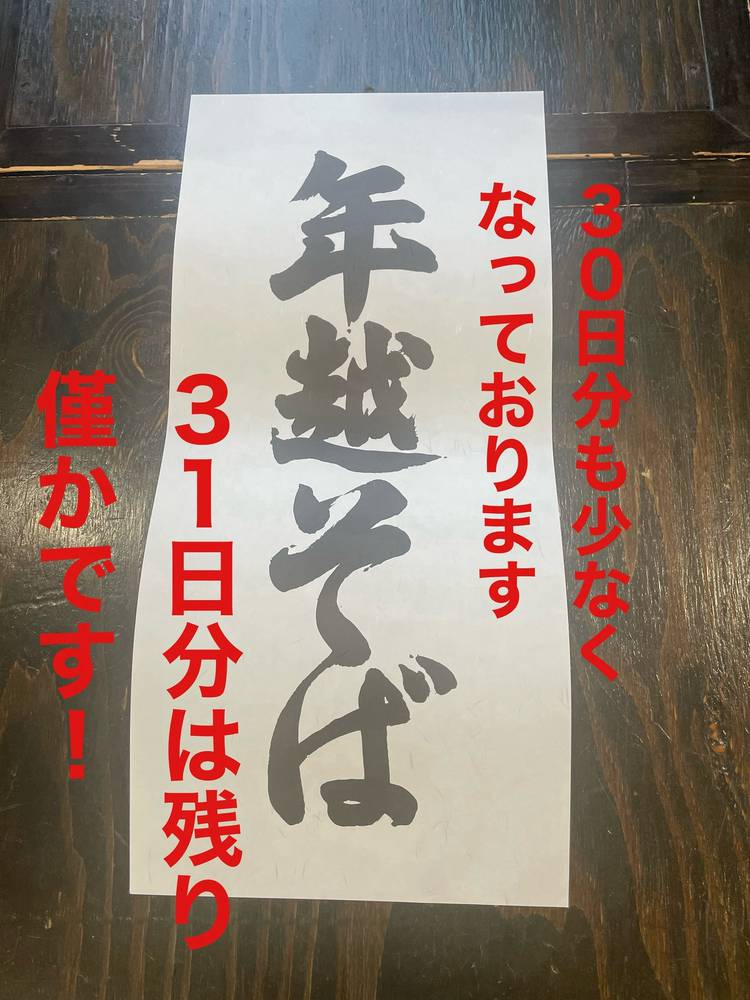 30日分も少なく
なっております
年越そば
31日分は残り
僅かです！